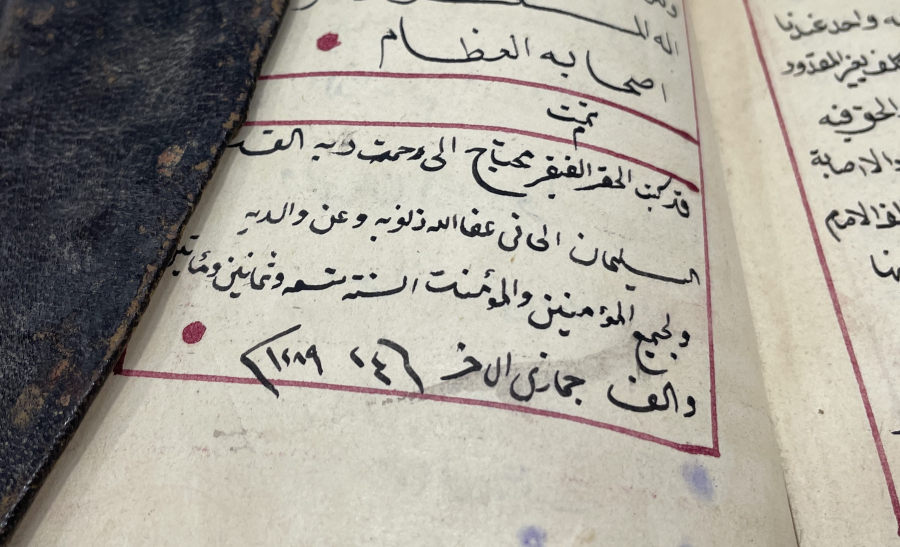 اله
اصحابه العظام
تمت
قد كتبت الحقر الفيقر محتاج الى رحمت ربه القد
السليمان الحانى عفا الله ذلونه وعن والديه
ولجميع المؤمينين والمؤمنت السنة تسعه وثمانين ومأتين
والف جمازى الاخر ٢٤ ١٢٨٩
ه واحد عندنا
والحق فيه
والاصابة